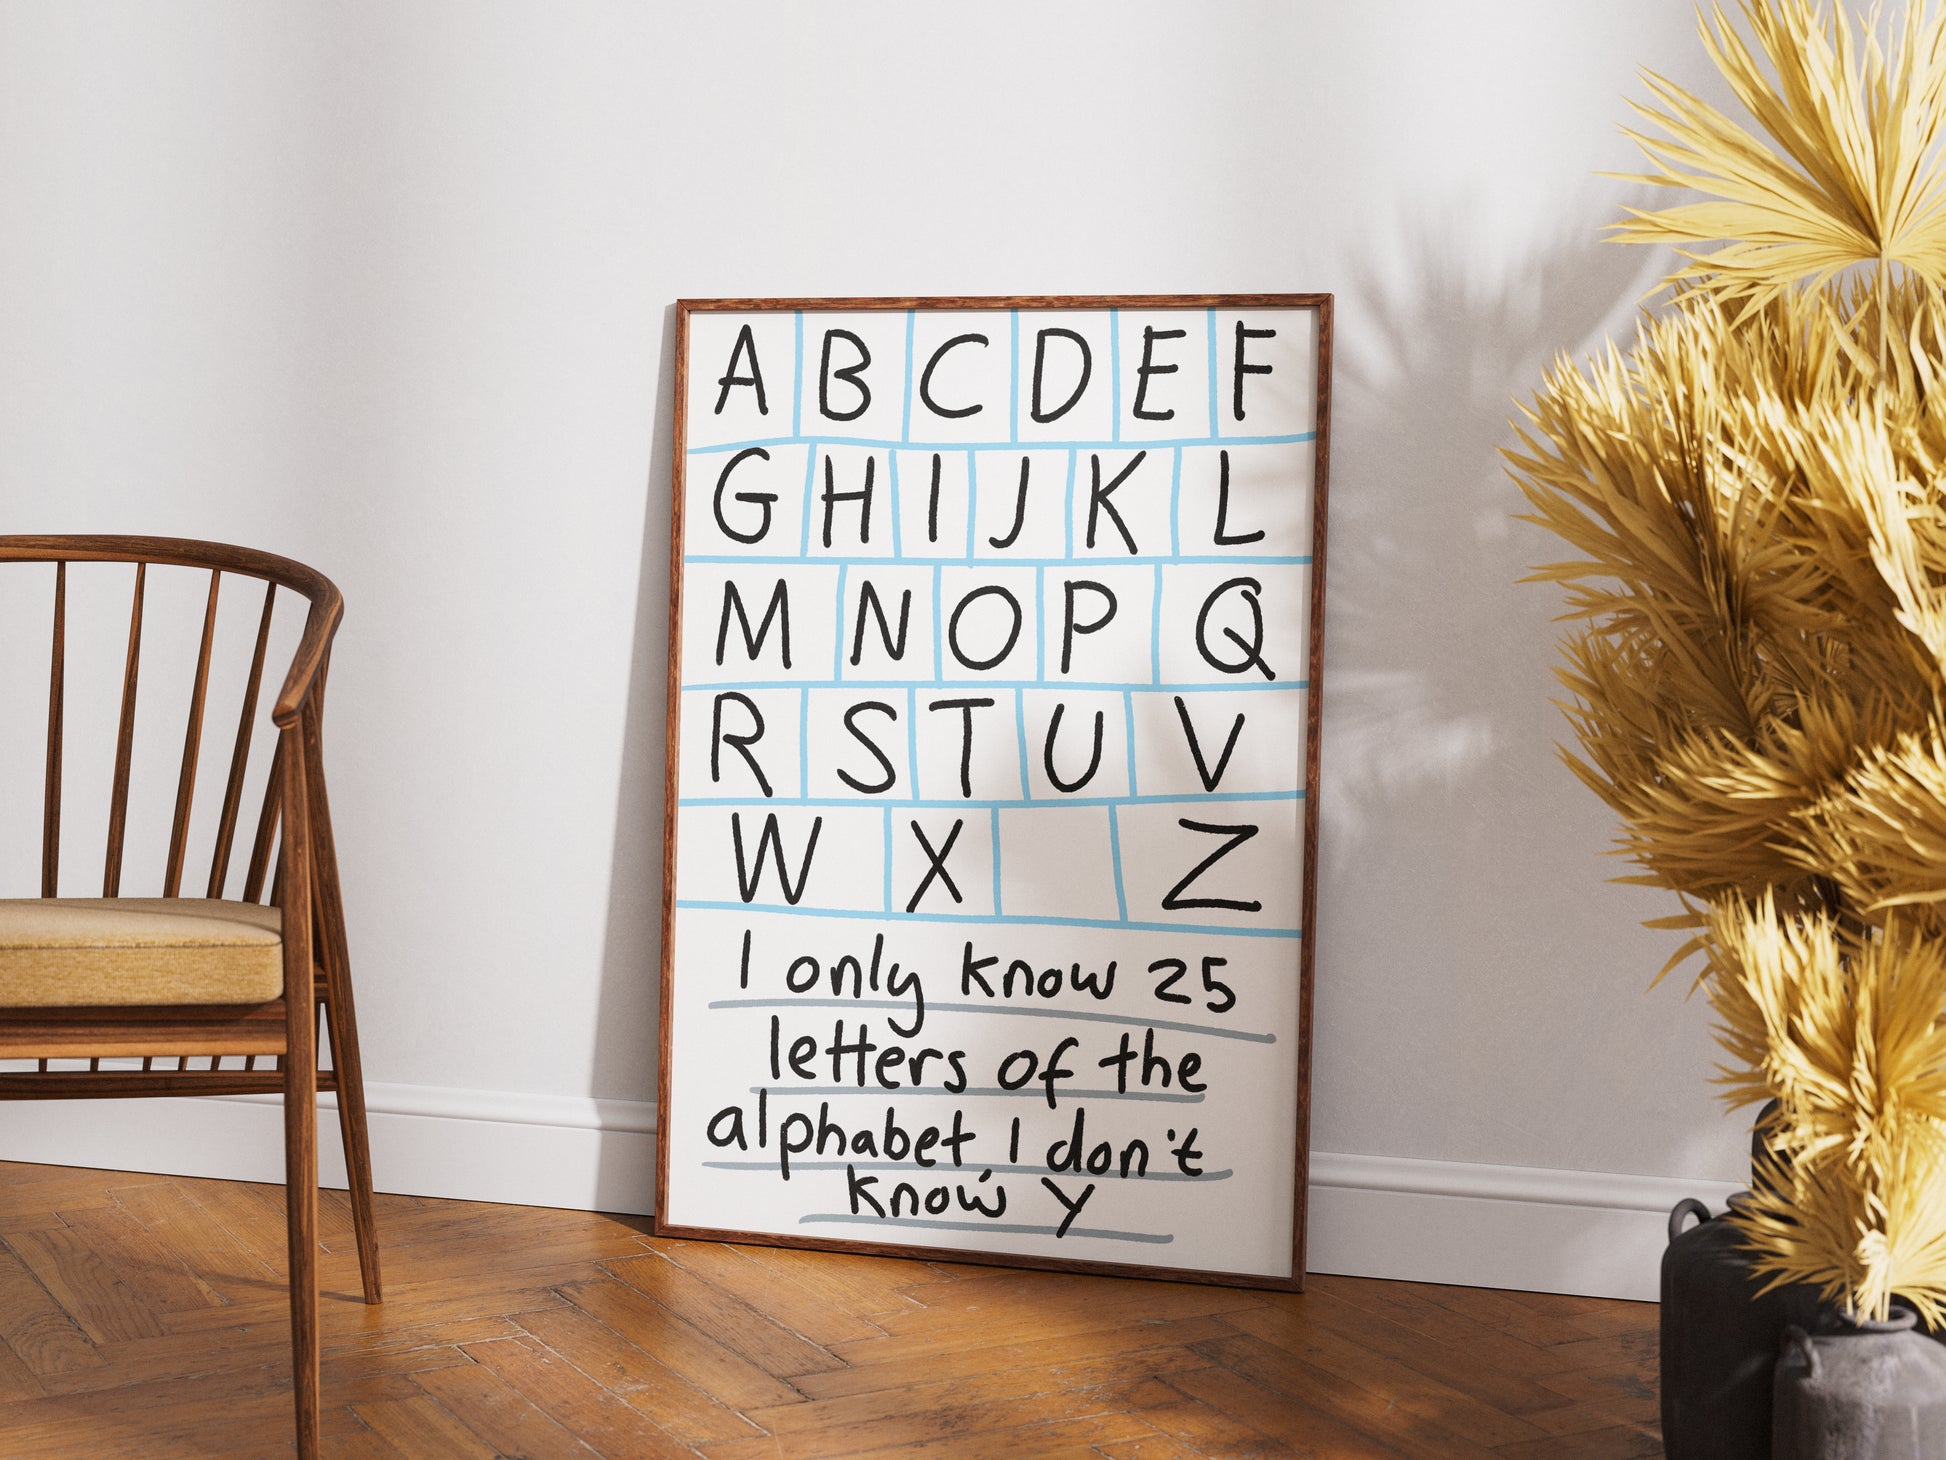 A B C D E F
G H I J K L
M N O P Q
R S T U V
W X Z
I only know 25
letters of the
alphabet, I don't
know Y